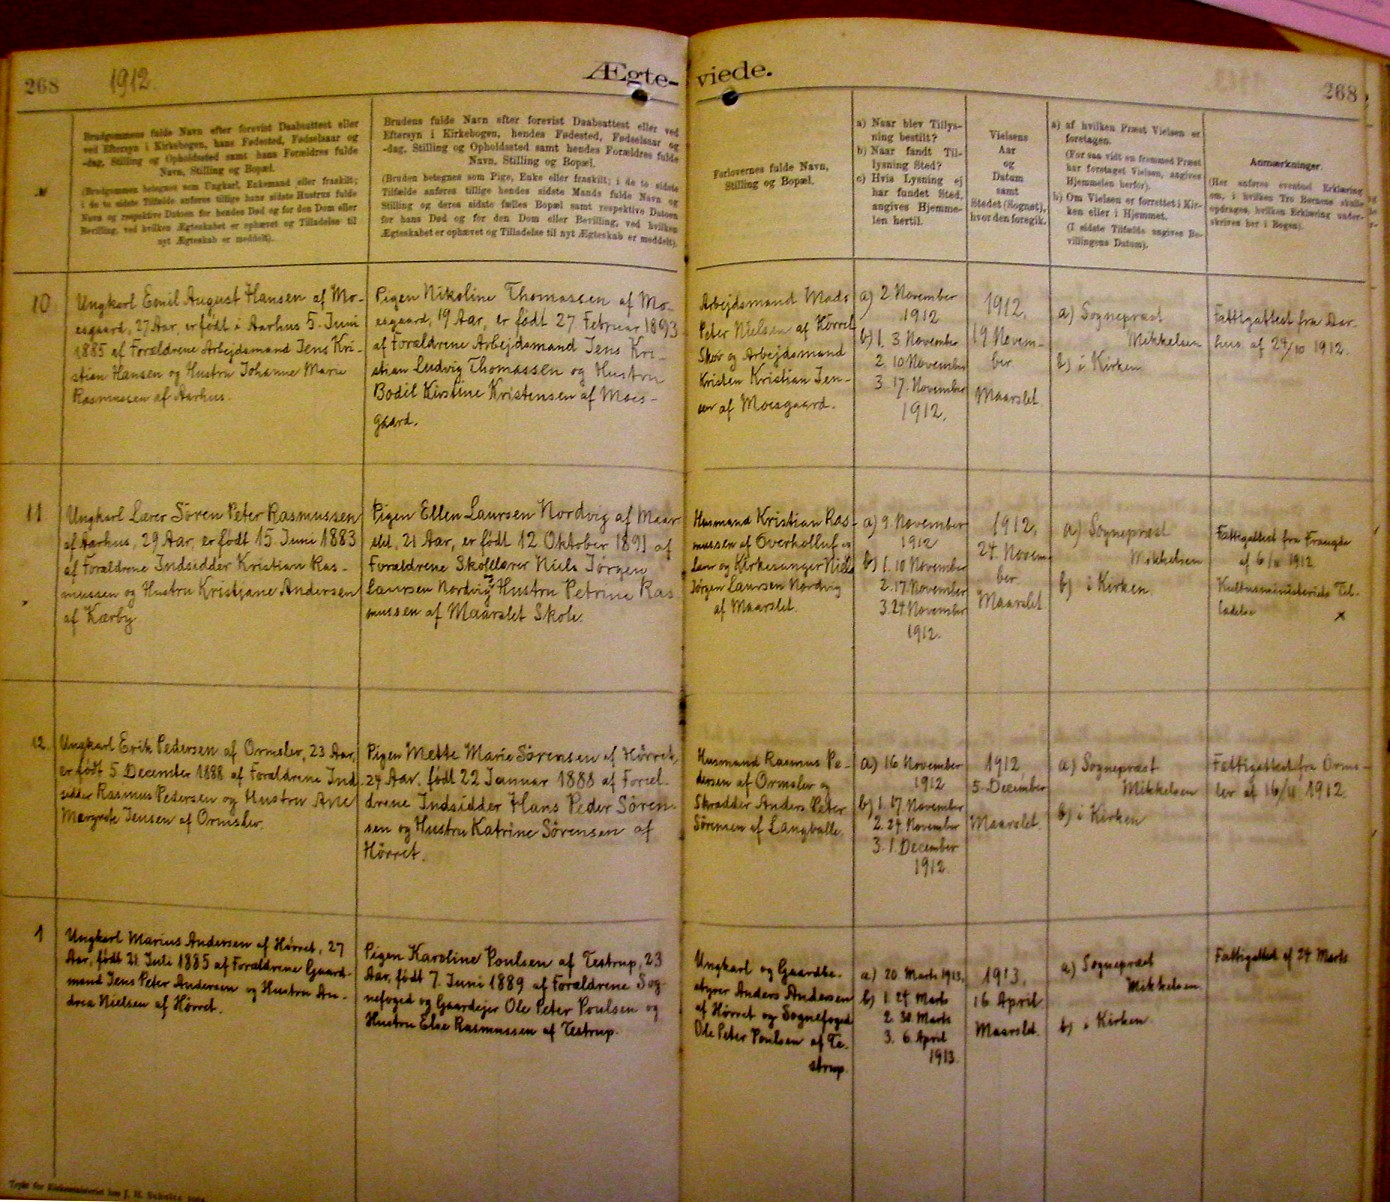 268
1912.
Ægte-
Brudgommens fulde Navn efter forevist Daabsattest eller
ved Eftersyn i Kirkebogen, hans Fødested, Fødselsaar og
-dag, Stilling og Opholdssted samt hans Forældres fulde
Navn, Stilling og Bopæl.
(Brudgommen betegnes som Ungkarl, Enkemand eller fraskilt;
i de to sidste Tilfælde anføres tillige hans sidste Hustrus fulde
Navn og respektive Datoen for hendes Død og for den Dom eller
Bevilling, ved hvilken Ægteskabet er ophævet og Tilladelse til
nyt Ægteskab er meddelt).
Brudens fulde Navn efter forevist Daabsattest eller ved
Eftersyn i Kirkebogen, hendes Fødested, Fødselsaar og
-dag, Stilling og Opholdssted samt hendes Forældres fulde
Navn, Stilling og Bopæl.
(Bruden betegnes som Pige, Enke eller fraskilt; i de to sidste
Tilfælde anføres tillige hendes sidste Mands fulde Navn og
Stilling og deres sidste fælles Bopæl samt respektive Datoen
for hans Død og for den Dom eller Bevilling, ved hvilken
Ægteskabet er ophævet og Tilladelse til nyt Ægteskab er meddelt).
10
Ungkarl Emil August Hansen af Mo-
esgaard, 27 Aar, er født i Aarhus 5. Juni
1885 af Forældrene Arbejdsmand Jens Kri-
stian Hansen og Hustru Johanne Marie
Rasmussen af Aarhus.
Pigen Nikoline Thomassen af Mo-
esgaard, 19 Aar, er født 27 Februar 1893
af Forældrene Arbejdsmand Jens Kri-
stian Ludvig Thomassen og Hustru
Bodil Kirstine Kristensen af Moes-
gaard.
11
Ungkarl Lærer Søren Peter Rasmussen
af Aarhus, 29 Aar, er født 15. Juni 1883
af Forældrene Indsidder Kristian Ras-
mussen og Hustru Kristjane Andersen
af Kærby
Pigen Ellen Laursen Nordvig af Maar
slet, 21 Aar, er født 12 Oktober 1891 af
Forældrene Skolelærer Niels Jørgen
Laursen Nordvig og Hustru Petrine Ras
mussen af Maarslet Skole.
12.
Ungkarl Erik Pedersen af Ormslev, 23 Aar,
er født 5 December 1888 af Forældrene Ind
sidder Rasmus Pedersen og Hustru Ane
Margrete Jensen af Ormslev.
Pigen Mette Marie Sørensen af Hørret,
24 Aar, født 22 Januar 1888 af Foræl-
drene Indsidder Hans Peder Søren-
sen og Hustru Katrine Sørensen af
Hørret.
1
Ungkarl Marius Andersen af Hørret, 27
Aar, født 21 Juli 1885 af Forældrene Gaard-
mand Jens Peter Andersen og Hustru An-
drea Nielsen af Hørret.
Pigen Karoline Poulsen af Testrup, 23
Aar, født 7. Juni 1889 af Forældrene Sog-
nefoged og Gaardejer Ole Peter Poulsen og
Hustru Else Rasmussen af Testrup.
Trykt for Kirkeministeriet hos J. H. Schultz
viede.
268
Forlovernes fulde Navn,
Stilling og Bopæl.
a) Naar blev Tillys-
ning bestilt?
b) Naar fandt Til-
lysning Sted?
c) Hvis Lysning ej
har fundet Sted,
angives Hjemme-
len hertil.
Vielsens
Aar
og
Datum
samt
Stedet (Sognet),
hvor den foregik.
a) af hvilken Præst Vielsen er
foretagen.
(For saa vidt en fremmed Præst
har foretaget Vielsen, angives
Hjemmelen herfor).
b) Om Vielsen er forrettet i Kir-
ken eller i Hjemmet.
(I sidste Tilfælde angives Be-
villingens Datum).
Anmærkninger.
(Her anføres eventuel Erklæring
om, i hvilken Tro Børnene skulle
opdrages, hvilken Erklæring under-
skrives her i Bogen).
Arbejdsmand Mads
Peter Nielsen af Hørret
Skov og Arbejdsmand
Kristen Kristian Jen-
sen af Moesgaard.
a) 2. November
1912
b) 1. 3 November
2. 10 November
3. 17. November
1912.
1912.
19 Novem-
ber
Maarslet
a) Sognepræst
Mikkelsen
b) i Kirken
Fattigattest fra Aar-
hus af 24/10 1912.
Husmand Kristian Ras-
mussen af Overholluf og
Lærer og Kirkesanger Niels
Jørgen Laursen Nordvig
af Maarslet.
a) 9. November
1912
b) 1. 10 November
2. 17. November
3. 24. November
1912.
1912.
24. Novem-
ber
Maarslet
a) Sognepræst
Mikkelsen
b) i Kirken
Fattigattest fra Fraugde
af 6/11 1912.
Kultusministeriets Til-
ladelse x
Husmand Rasmus Pe-
dersen af Ormslev og
Skrædder Anders Peter
Sørensen af Langballe.
a) 16 November
1912
b) 1. 17. November
2. 24. November
3. 1. December
1912.
1912
5. December
Maarslet.
a) Sognepræst
Mikkelsen
b) i Kirken
Fattigattest fra Orms-
lev af 16/11 1912.
Ungkarl og Gaardbe-
styrer Anders Andersen
af Hørret og Sognefoged
Ole Peter Poulsen af Te-
strup.
a) 20. Marts 1913.
b) 1. 24. Marts
2. 30. Marts
3. 6. April
1913.
1913.
16. April
Maarslet.
a) Sognepræst
Mikkelsen
b) i Kirken
Fattigattest af 24. Marts